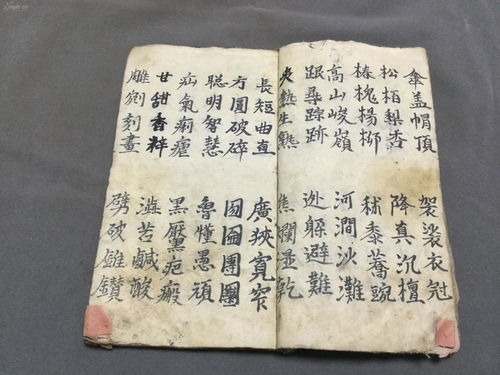 傘盖帽頂 袈裟衣冠
松栢梨杏 降真沉檀
榛槐楊柳 秫黍蕎豌
高山峻嶺 河澗沙灘
跟尋踪跡 迯躲避難
熱生熟 焦爛並乾
長短曲直 廣狹寬窄
方圓破碎 囫圇團
聰明智慧 魯憧愚頑
疝氣痢瘧 黑黶疤
甘甜香粹 澁苦鹹酸
雕剜刻畫 劈破鑽